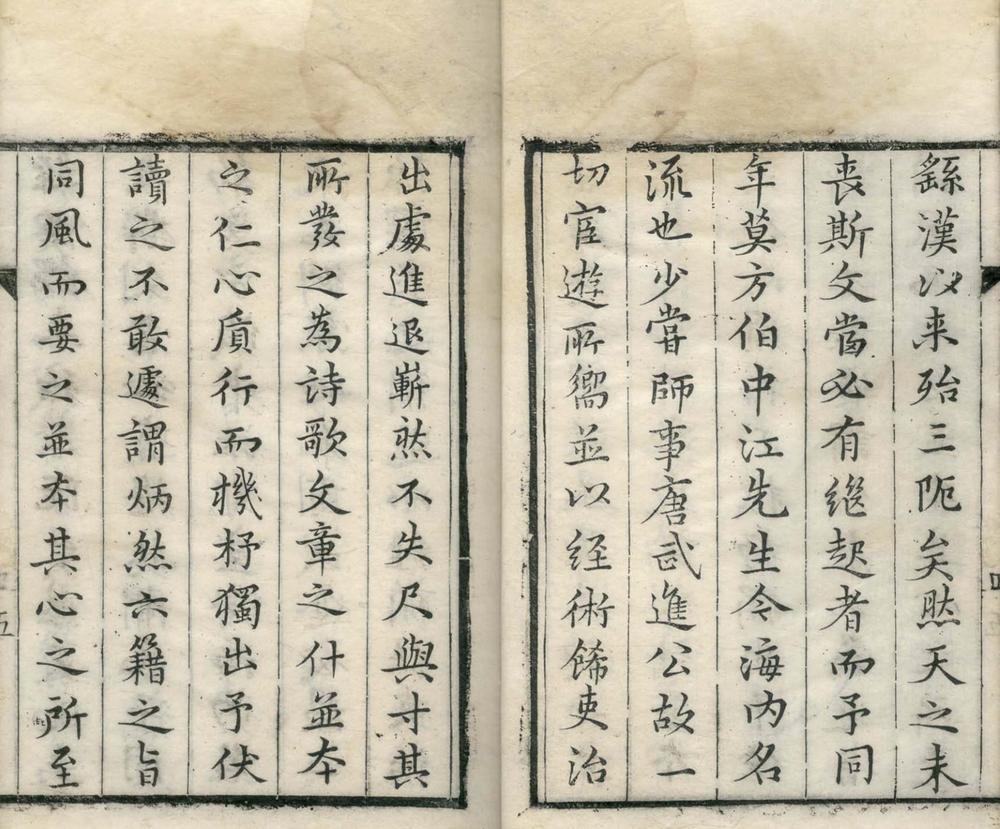 繇漢以来殆三阨矣然天之未
喪斯文當必有継起者而予同
年莫方伯中江先生今海内名
流也少嘗師事唐武進公故一
切宦遊所嚮並以経術餙吏治
出處進退嶄然不失尺與寸其
所發之為詩歌文章之什並本
之仁心质行而機杼獨出予伏
讀之不敢遽謂炳然六籍之旨
同風而要之並本其心之所至
四
五